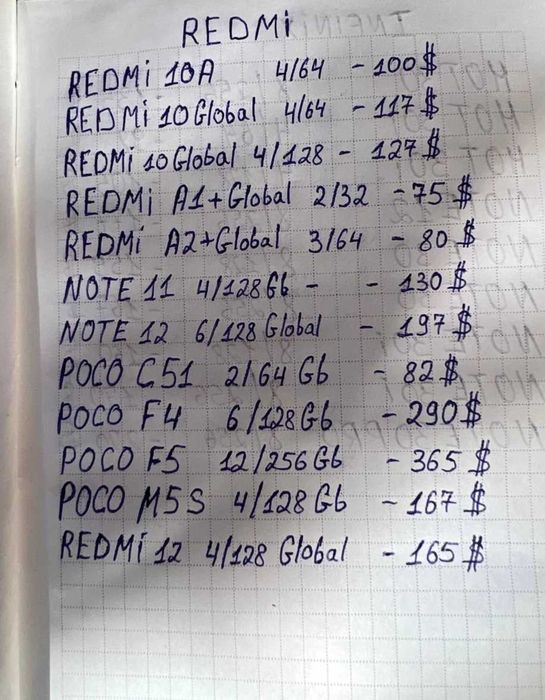 REDMi
REDMi 10A 4/64 - 100$
REDMi 10 Global 4/64 - 117$
REDMi 10 Global 4/128 - 127$
REDMi A1+Global 2/32 - 75$
REDMi A2+Global 3/64 - 80$
NOTE 11 4/128Gb - - 130$
NOTE 12 6/128 Global - 197$
POCO C51 2/64 Gb - 82$
POCO F4 6/128Gb - 290$
POCO F5 12/256Gb - 365$
POCO M5S 4/128Gb - 167$
REDMi 12 4/128 Global - 165$